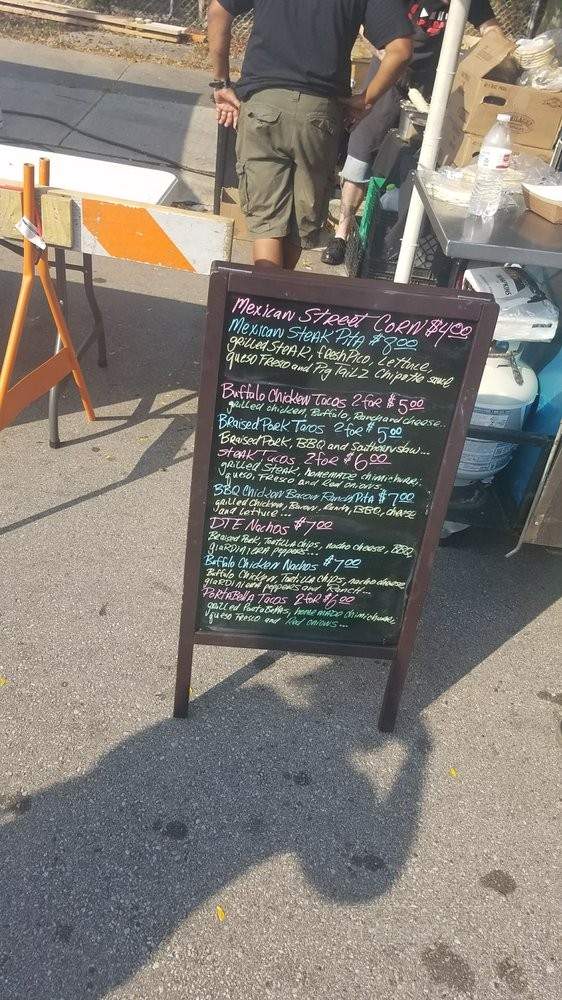 Mexican Street Corn $4.00
Mexican Steak Pita $8.00
grilled Steak, fresh Pico, Lettuce,
queso Fresco and Pig Tailz Chipotle sauce
Buffalo Chicken Tacos 2 for $5.00
grilled chicken, Buffalo, Ranch and cheese...
Braised Pork Tacos 2 for $5.00
Braised Pork, BBQ and Southern slaw...
Steak Tacos 2 for $6.00
grilled Steak, homemade chimichurri,
queso, Fresco and Red onions...
BBQ Chicken Bacon Ranch Pita $7.00
grilled Chicken, Bacon, Ranch, BBQ, cheese
and Lettuce...
DTE Nachos $7.00
Braised Pork, Tortilla Chips, nacho cheese, BBQ
giardiniera peppers...
Buffalo Chicken Nachos $7.00
Buffalo Chicken, Tortilla Chips, nacho cheese
giardiniera peppers and Ranch...
Portabella Tacos 2 for $6.00
grilled Portabellas, homemade chimichurri,
queso Fresco and Red onions...